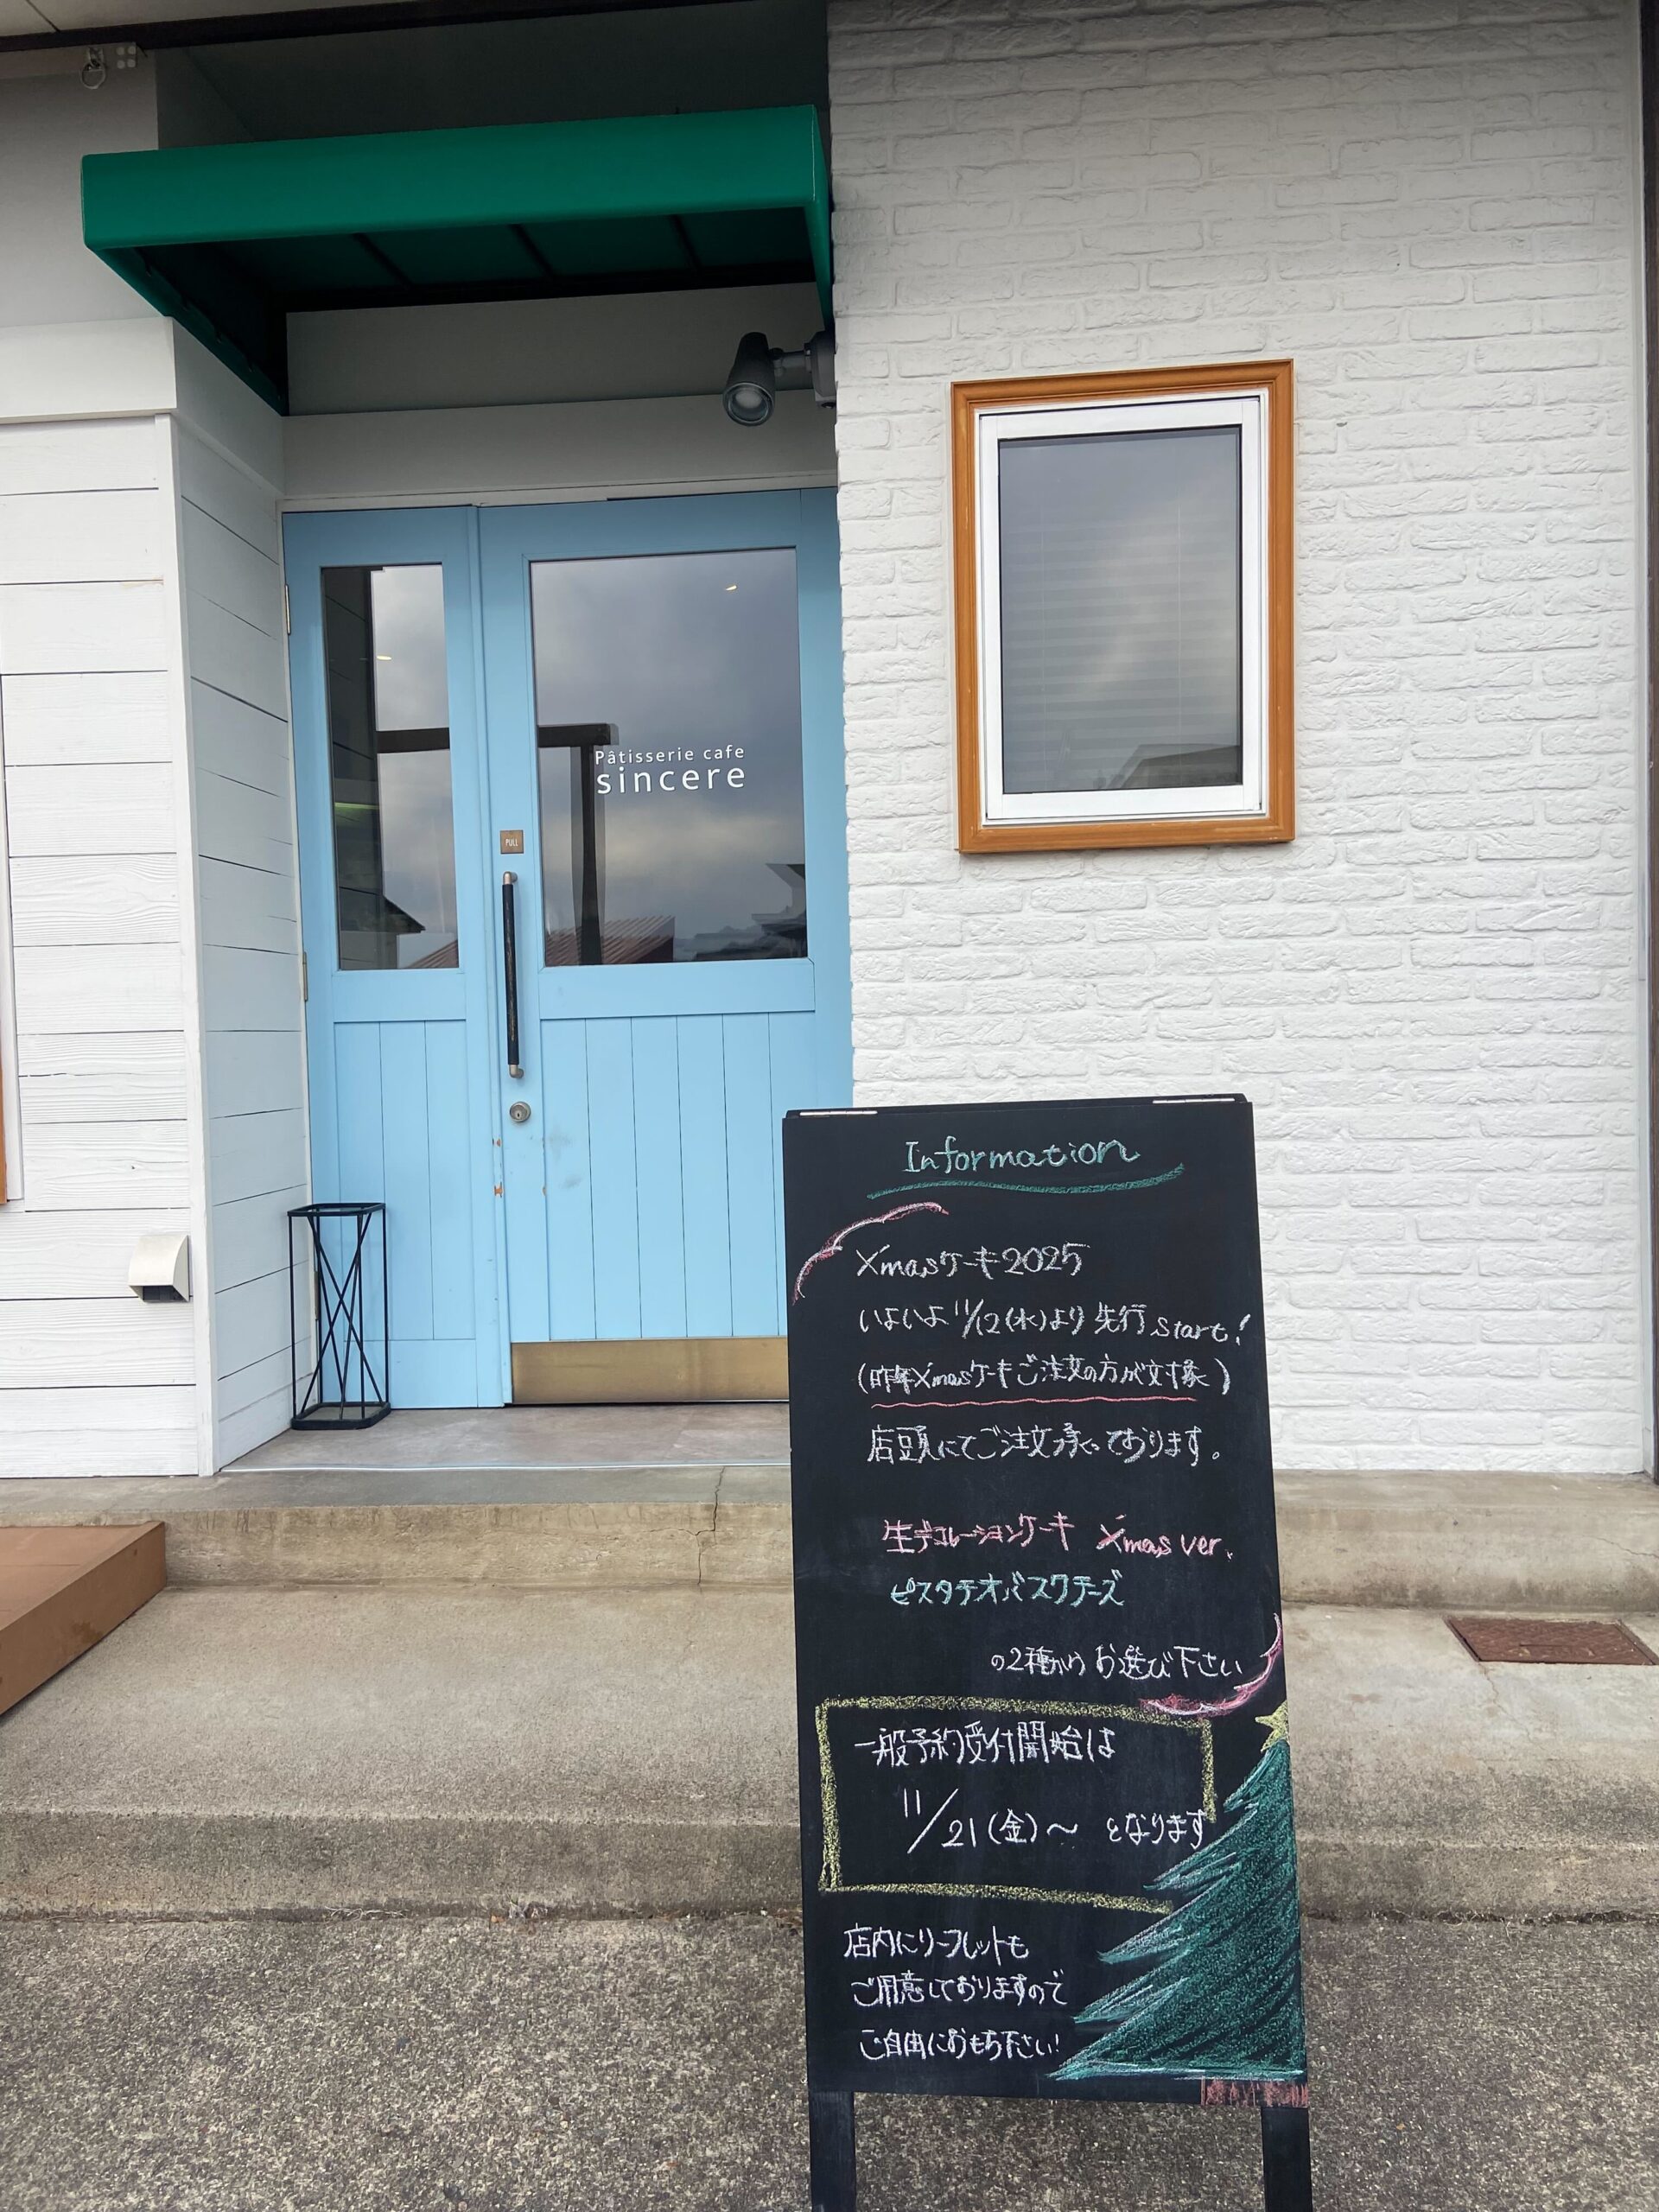 Pâtisserie cafe
sincere
PULL
Information
Xmasケーキ2025
いよいよ 11/12(水)より 先行 start!
(昨年Xmasケーキご注文の方が対象)
店頭にてご注文承っております。
生デコレーションケーキ Xmas ver.
ピスタチオバスクチーズ
の2種からお選び下さい
一般予約受付開始は
11/21(金)〜 となります
店内にリーフレットも
ご用意しておりますので
ご自由におもち下さい!